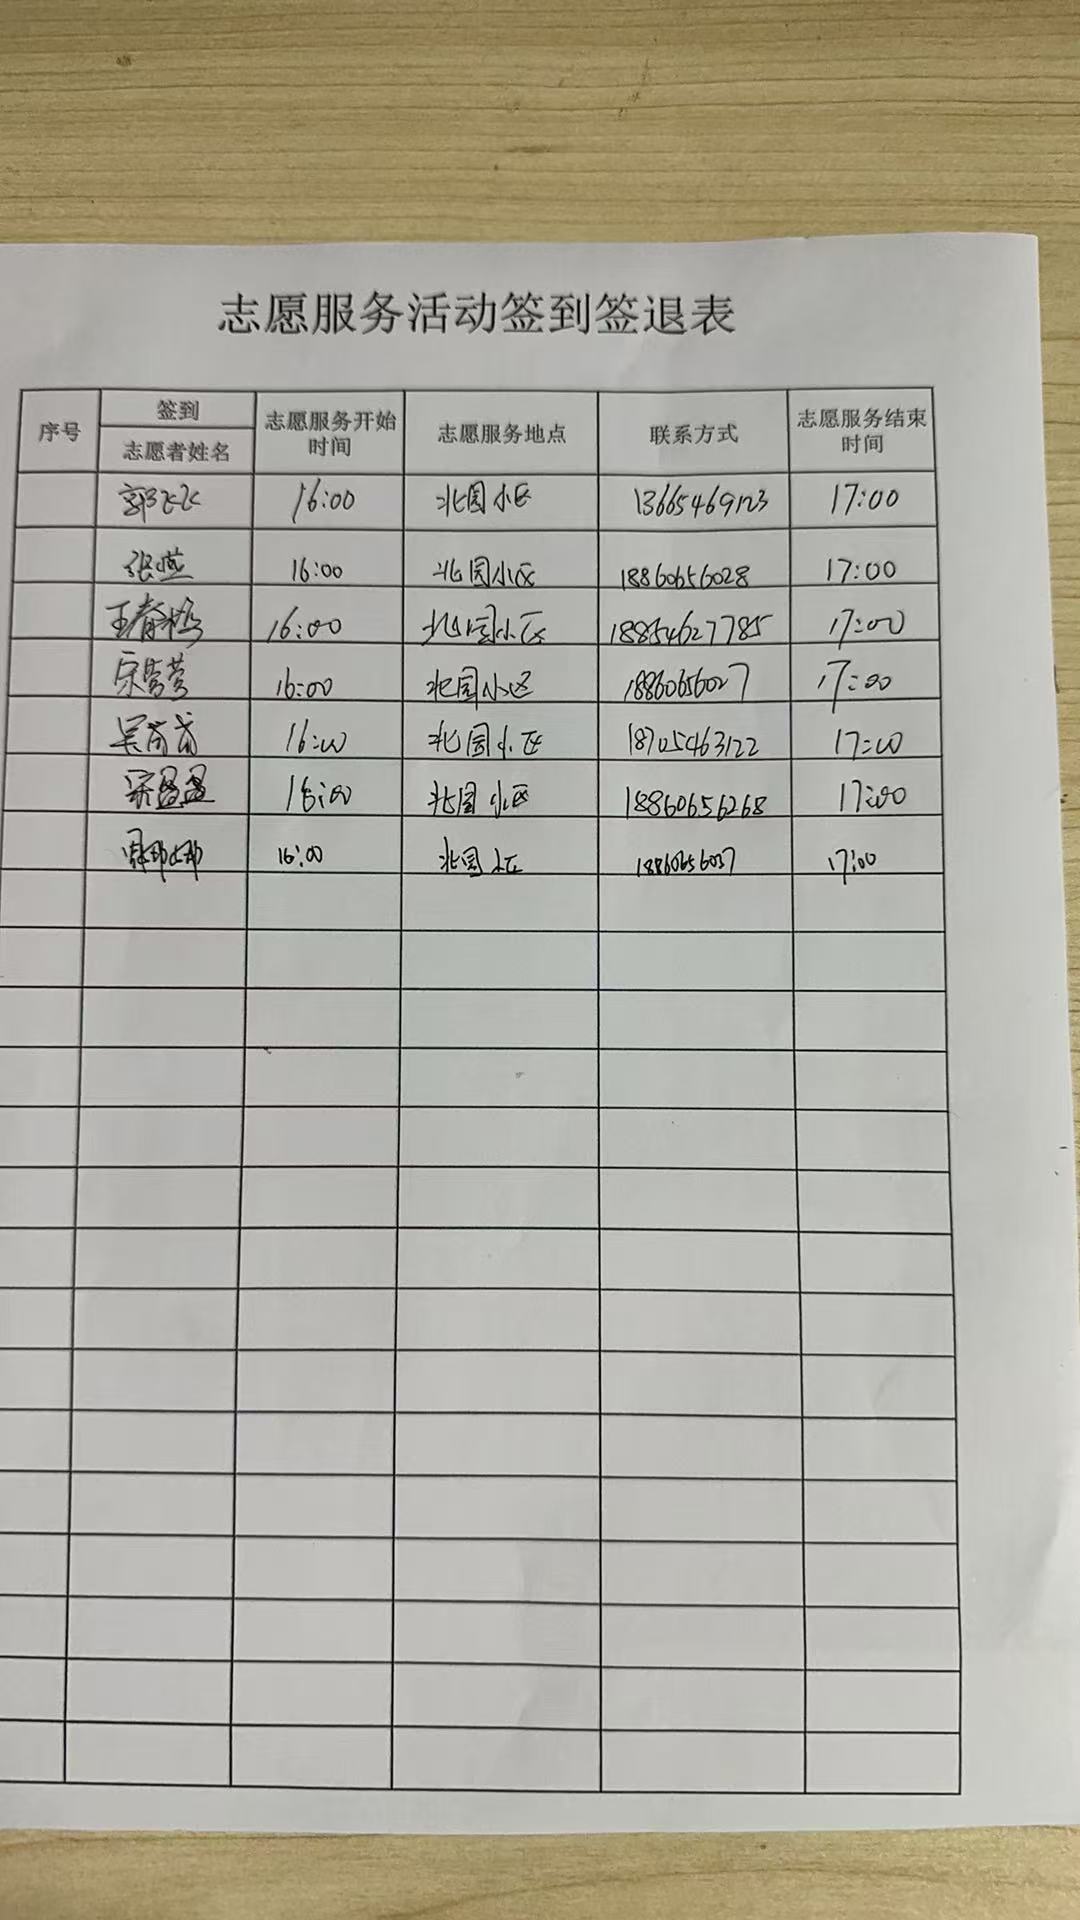 志愿服务活动签到签退表
序号 签到 志愿者姓名 志愿服务开始时间 志愿服务地点 联系方式 志愿服务结束时间
郭飞飞 16:00 北国小区 13665469123 17:00
张燕 16:00 北国小区 18860656028 17:00
王春梅 16:00 北国小区 18854627785 17:00
宋莹莹 16:00 北国小区 18860656027 17:00
16:00 北国小区 18705463122 17:00
宋盈盈 16:00 北国小区 18860656268 17:00
周娜娜 16:00 北国小区 18860656037 17:00